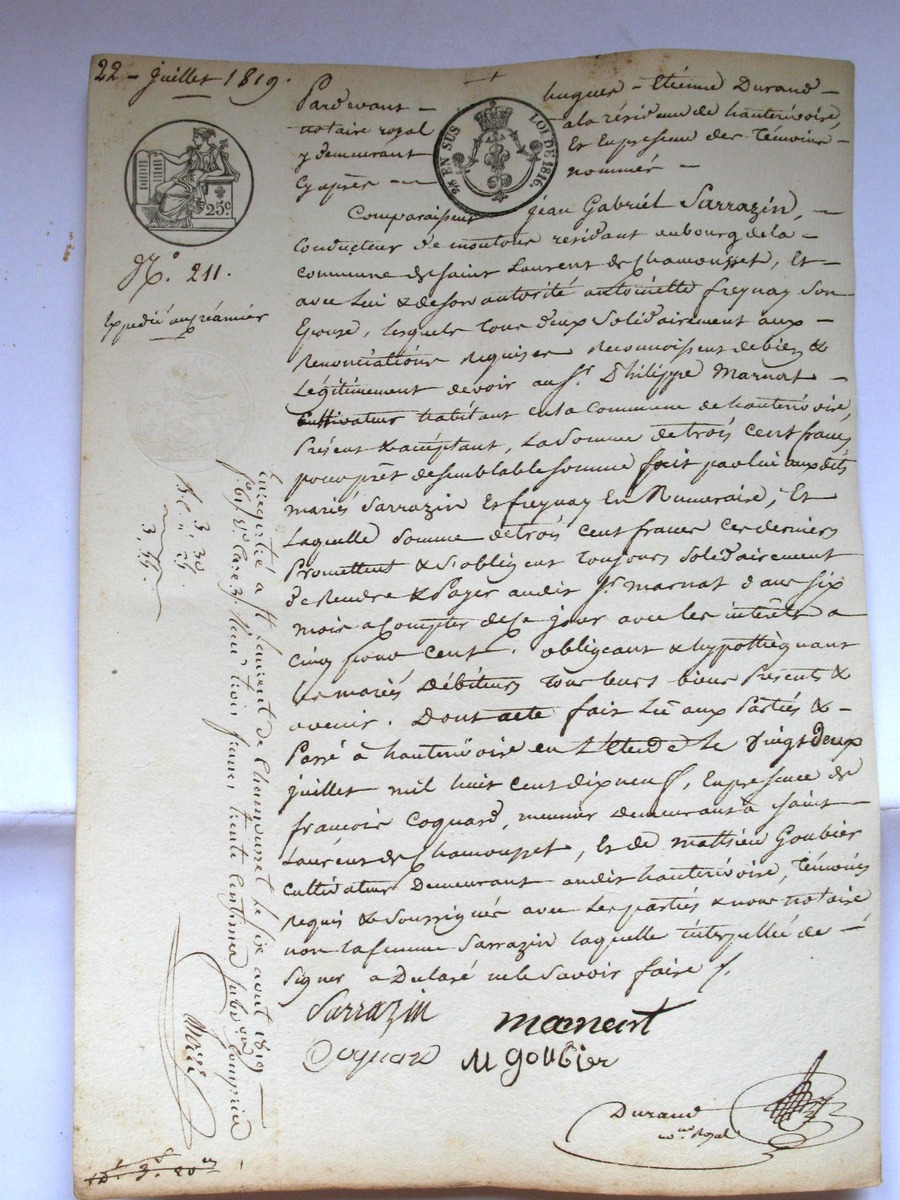 22 - juillet 1819.
Pardevant - hugues - Etienne Durand
notaire royal a la résidence de hauterivoire,
y demeurant Et En presence des Témoins
Cy après - nommés -
EN SUS LOI DE 1816.
25c.
N.° 211.
Expedié au créancier
Comparaissent jean Gabriel Sarrazin, -
Conducteur de moutons résidant au bourg de la -
commune de saint Laurent de Chamousset, Et -
avec Lui & de son autorité antoinette freynay Son
Epouse, lesquels tous deux Solidairement aux -
renonciations requises reconnoissent debien &
Légitimement devoir au Sr. Philippe Marnat -
Cultivateur habitant en la Commune de hauterivoire,
Présent & acceptant, La Somme de trois cent francs
pour prêt de semblable somme fait par lui aux dits
mariés Sarrazin Et freynay En Numeraire; Et
Laquelle Somme de trois cent francs ces derniers
Promettent & s'obligent toujours Solidairement
de Rendre & Payer au dit Sr. marnat dans Six
mois a Compter de Ce jour avec les intérêts a
Cinq pour Cent. obligeant & hypothéquant
les mariés Débiteurs tous leurs biens Présents &
avenir. Dont acte fait Lu aux Parties & -
Passé à hauterivoire en l'Etude le Vingt deux
juillet mil huit Cent dix neuf, En presence de
francois Coquard, meunier demeurant à Saint
Laurent de Chamousset, Et de mathieu Goubier
Cultivateur Demeurant au dit hauterivoire, Témoins
requis & Soussignés avec Les parties & nous notaire
non la femme Sarrazin laquelle interpellée de -
Signer a Déclaré ne le Savoir faire ./.
Sarrazin marnat
Coquard M goubier
Durand
nore Royal
Enregistré a St Laurent de Chamousset le six aout 1819
fo 69. Vo. Case 3. Reçu trois francs trente centimes subv on comprise
3, 30
3, 55